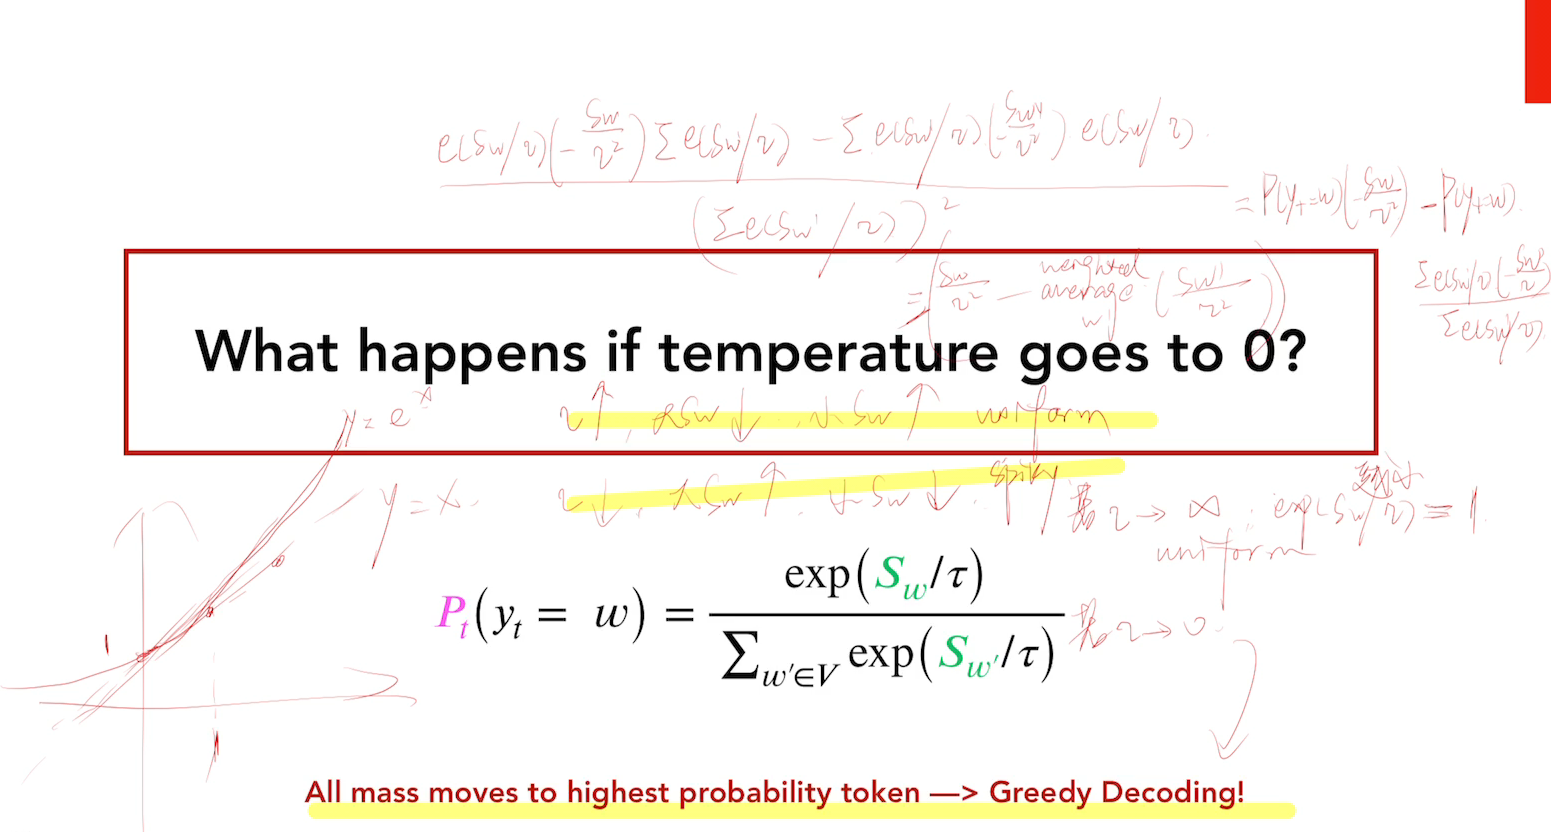 e(Sw/τ)(-Sw/τ²)Σe(Sw'/τ) - Σe(Sw'/τ)(-Sw'/τ²) e(Sw/τ)
(Σe(Sw'/τ))²
= P(yt=w)(-Sw/τ²) - P(yt=w)
Σe(Sw'/τ)(-Sw'/τ²)
Σe(Sw'/τ)
= (Sw/τ² - weighted average w' (Sw'/τ²))
What happens if temperature goes to 0?
y = eˣ
τ↑, 大Sw↓, 小Sw↑ uniform
y = x
τ↓, 大Sw↑, 小Sw↓ spiky
若τ→∞, exp(Sw/τ) = 1
uniform
Pt(yt = w) = exp(Sw/τ) / Σw'∈V exp(Sw'/τ)
若τ→0
1
1
All mass moves to highest probability token —> Greedy Decoding!